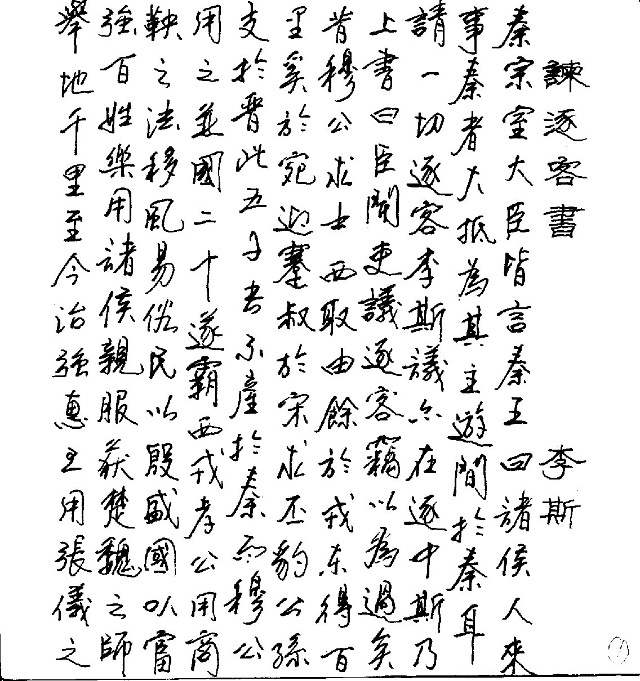 諫逐客書　李斯
秦宗室大臣皆言秦王曰諸侯人來
事秦者大抵為其主遊間於秦耳
請一切逐客李斯議亦在逐中斯乃
上書曰臣聞吏議逐客竊以為過矣
昔穆公求士西取由餘於戎東得百
里奚於宛迎蹇叔於宋求丕豹公孫
支於晉此五子者不產於秦而穆公
用之並國二十遂霸西戎孝公用商
鞅之法移風易俗民以殷盛國以富
強百姓樂用諸侯親服获楚魏之師
舉地千里至今治強惠王用張儀之